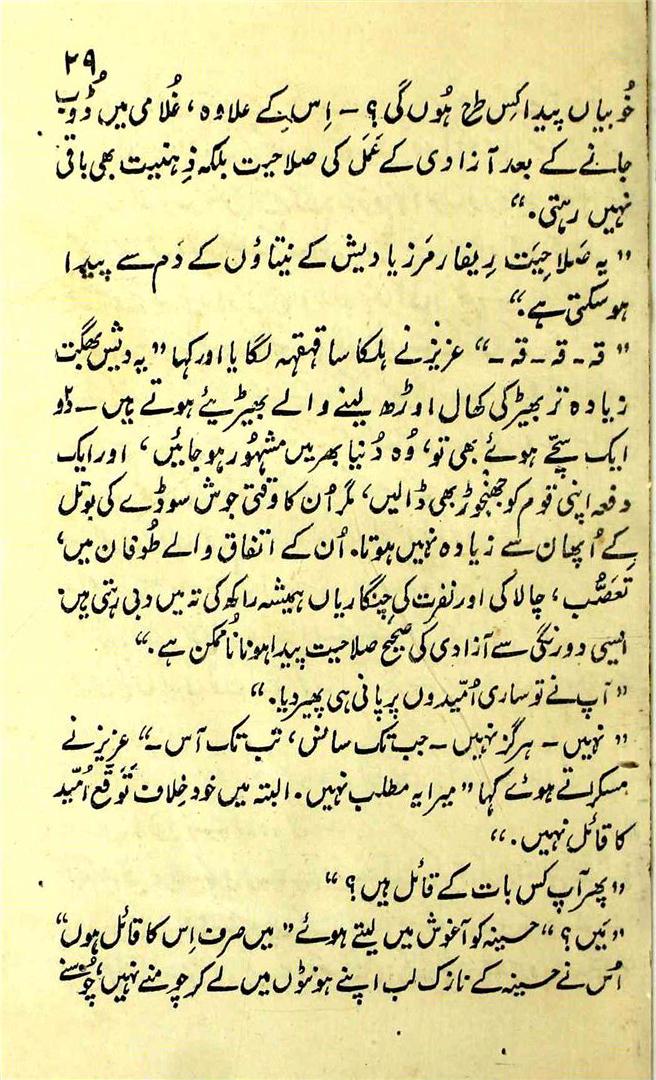 ۲۹
خُوبیاں پیدا کِس طح ہُوں گی؟ - اِس کے علاوہ، غُلامی میں ڈُوب
جانے کے بعد آزادی کے عَمَل کی صلاحیت بلکہ ذِہنیت بھی باقی
نہیں رہتی۔“
” یہ صَلاحِیَت رِیفارمَرز یا دیش کے نیتاؤں کے دَم سے پیدا
ہو سکتی ہے۔“
” قہ - قہ - قہ -“ عزیز نے ہلکا سا قہقہہ لگایا اور کہا ” یہ دیش بھگت
زیادہ تر بھیڑ کی کھال اوڑھ لینے والے بھیڑیئے ہوتے ہیں - دُو
ایک سچّے ہوئے بھی تو، وُہ دُنیا بھر میں مشہُور ہو جائیں، اور ایک
دفعہ اپنی قوم کو جھنجوڑ بھی ڈالیں، مگر اُن کا وقتی جوش سوڈے کی بوتل
کے اُپھان سے زیادہ نہیں ہوتا۔ اُن کے اتفاق والے طُوفان میں،
تَعَصُّب، چالاکی اور نفرت کی چنگاریاں ہمیشہ راکھ کی تہ میں دبی رہتی ہیں۔
ایسی دورنگی سے آزادی کی صحیح صلاحیت پیدا ہونا نُاممکن ہے۔“
” آپ نے تو ساری اُمّیدوں پر پانی ہی پھیر دیا۔“
” نہیں - ہرگز نہیں - جب تک سانس، تب تک آس -“ عزیز نے
مسکراتے ہوئے کہا ” میرا یہ مطلب نہیں۔ البتہ میں خود خِلاف تَوَقّع اُمّید
کا قائل نہیں۔“
” پھر آپ کس بات کے قائل ہیں؟“
” مَیں؟“ حسینہ کو آغوش میں لیتے ہوئے ” میں صرف اِس کا قائل ہوں“
اُس نے حسینہ کے نازک لب اپنے ہونٹوں میں لے کر چومنے نہیں، چُوسنے